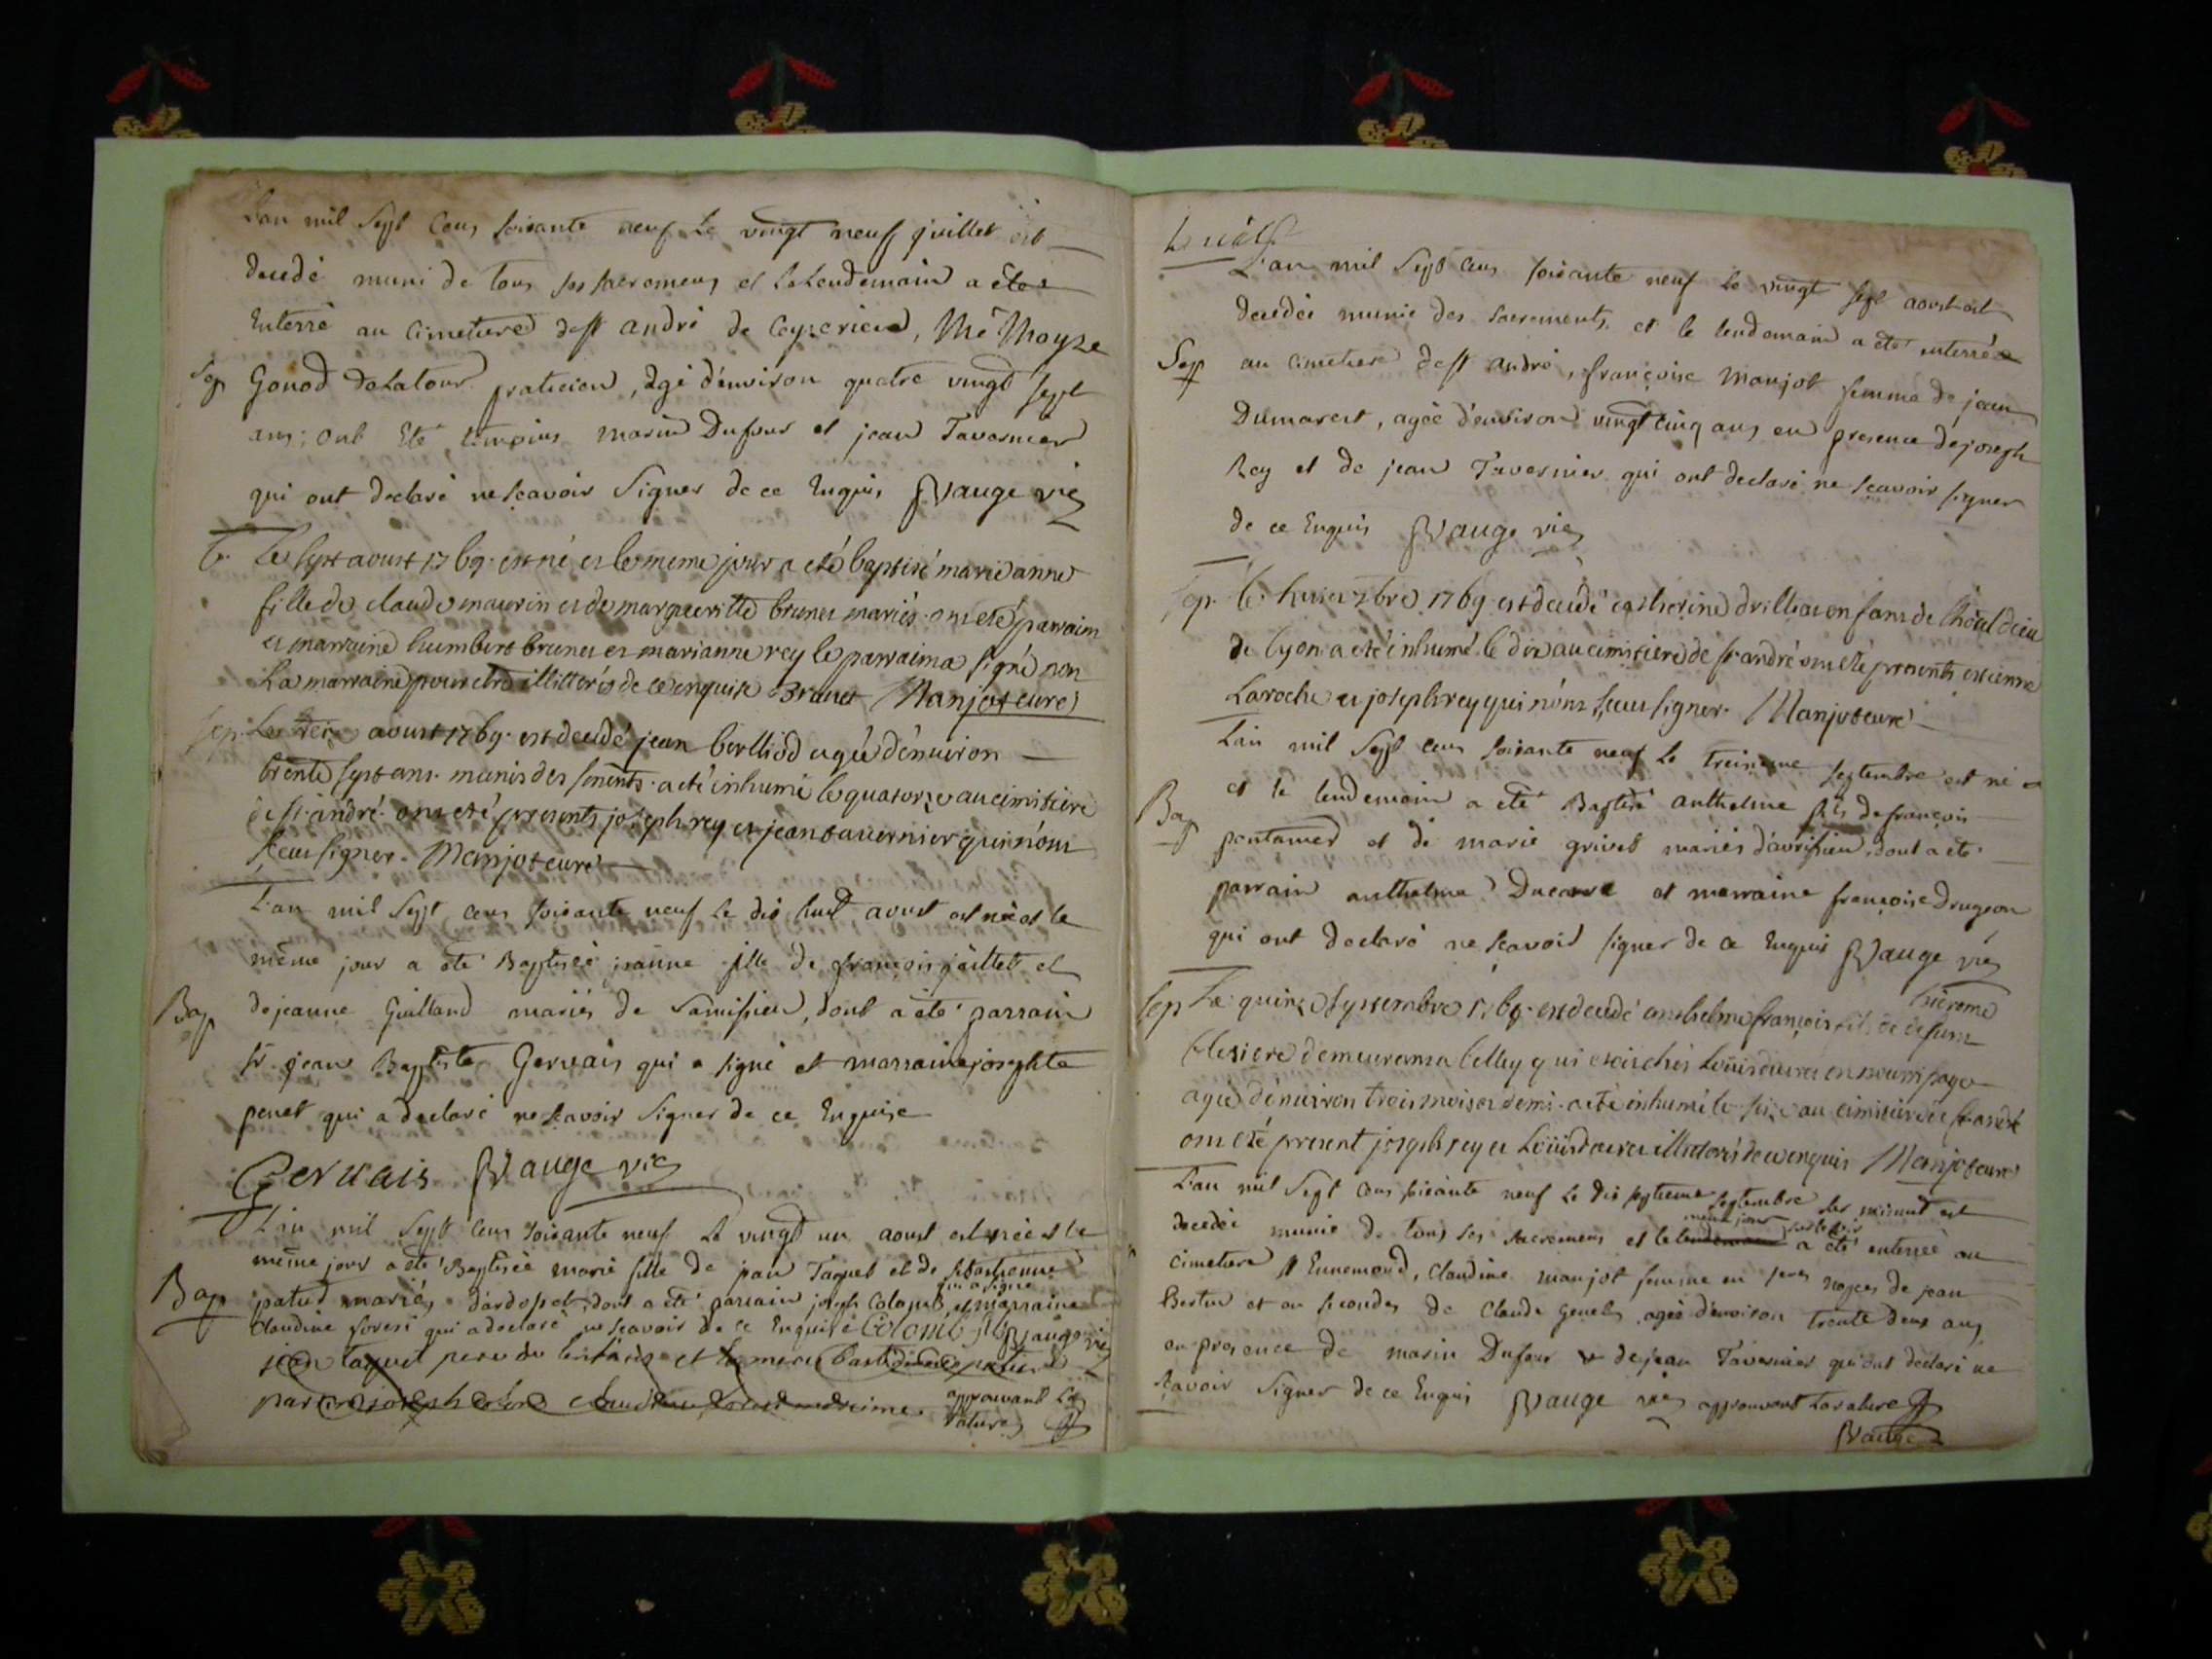 L'an mil sept cens soixante neuf le vingt neuf juillet est
decedé muni de tous ses sacremens et le lendemain a eté
enterré au cimetiere de st andré de Ceyzerieu, Me Moyse
Sep Gonod de Latour praticien, agé d'environ quatre vingt sept
ans; ont eté temoins marin Dufour et jean Tavernier
qui ont declaré ne scavoir signer de ce enquis Vauge vic
b. Le sept aoust 1769. est né et le meme jour a eté baptisé marie anne
fille de claude maurin et de margueritte brunet mariés. ont eté parrain
et marraine humbert brunet et marianne rey le parrain a signé non
la marraine pour etre illitterés de ce enquise Brunet Manjot curé
sep. Le treize aoust 1769. est decedé jean berlliod agé d'environ
trente sept ans. munis des sments. a eté inhumé le quatorze au cimitiere
de st. andré. ont eté presents joseph rey et jean tavernier qui n'ont
sceu signer. Manjot curé
L'an mil sept cens soixante neuf le dix huit aoust est née et le
même jour a eté Baptisée jeanne fille de françois jaillet et
Bap de jeanne Guilland mariés de , dont a eté parrain
sr. jean Baptiste Gervais qui a signé et marraine josephte
penet qui a declaré ne scavoir signer de ce enquise
Gervais Vauge vic
L'an mil sept cens soixante neuf le vingt un aoust est née et le
même jour a eté Baptisée marie fille de jean Taquet et de sebastienne
qui a signé
Bap patud mariés d'ardosset, dont a eté parrain joseph Colomb et marraine
Claudine forest qui a declaré ne scavoir de ce enquise Colomb Vauge vic
jean taquet pere du et la mere
par joseph approuvant la
rature
L'an mil sept cens soixante neuf le vingt sept aoust est
decedée munie des sacrements, et le lendemain a eté enterrée
Sep au cimetiere de st andré, françoise Manjot femme de jean
Dumarest, agée d'environ vingt cinq ans en presence de joseph
Rey et de jean Tavernier qui ont declaré ne scavoir signer
de ce enquis Vauge vic
sep. le 7bre 1769 est decedé catherine enfans de l'hotel dieu
de lyon a eté inhumé le dix au cimitiere de st andré ont eté presents etienne
Laroche et joseph rey qui n'ont sceu signer. Manjot curé
L'an mil sept cens soixante neuf le treizieme septembre est né
et le lendemain a eté Baptisé anthelme fils de françois
Bap et de marie grivet mariés d'avrissieu, dont a eté
parrain anthelme et marraine françoise Drugeon
qui ont declaré ne scavoir signer de ce enquis Vauge vic
hierome
sep Le quinze septembre 1769. est decedé anthelme françois fils de
demeurant a belley qui etoit chés Loüis en nourrissage
agé d'environ trois mois et demi. a eté inhumé le seize au cimitiere de st andré
ont eté present joseph rey et Loüis illitterés de ce enquis Manjot curé
L'an mil sept cens soixante neuf le dix septieme septembre est
même jour sur le soir
decedée munie de tous ses sacremens et le lendemain a eté enterrée au
cimetiere st Ennemond, Claudine manjot femme en 1eres noces de jean
Bertin et en secondes de Claude Genet, agée d'environ trente deux ans,
en presence de marin Dufour et de jean Tavernier qui ont declaré ne
scavoir signer de ce enquis Vauge vic approuvant la rature
Vauge